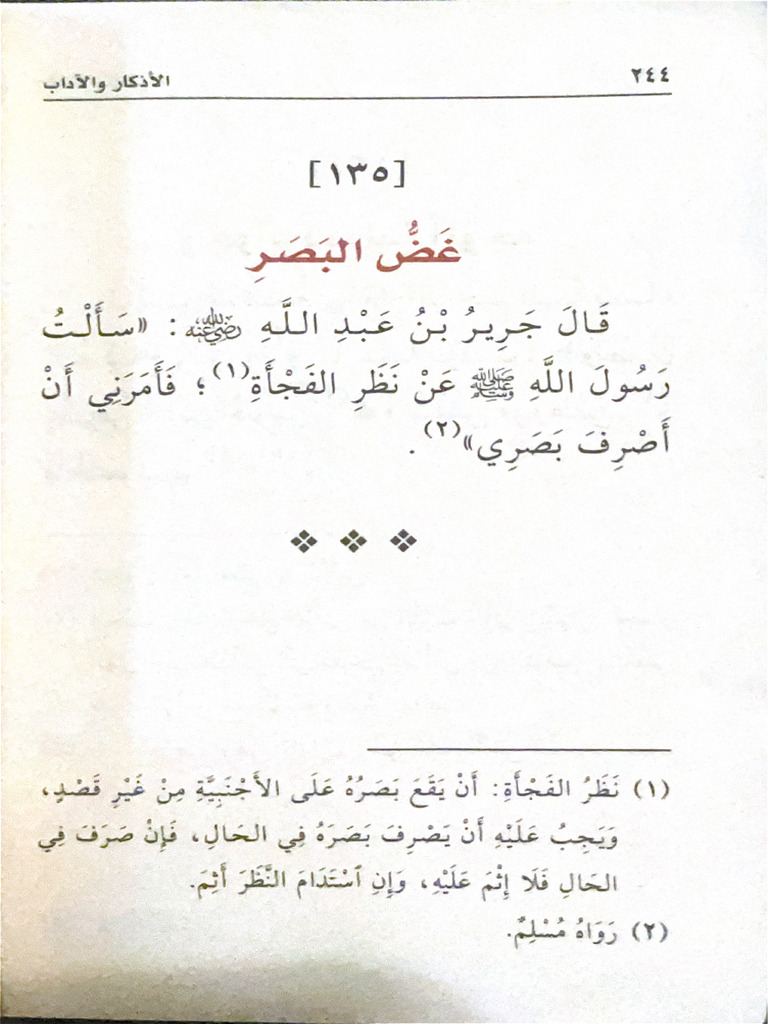 ٢٤٤
الأذكار والآداب
[١٣٥]
غَضُّ البَصَرِ
قَالَ جَرِيرُ بْنُ عَبْدِ اللَّهِ رضي الله عنه: «سَأَلْتُ
رَسُولَ اللَّهِ ﷺ عَنْ نَظَرِ الفَجْأَةِ(١)؛ فَأَمَرَنِي أَنْ
أَصْرِفَ بَصَرِي»(٢).
(١) نَظَرُ الفَجْأَةِ: أَنْ يَقَعَ بَصَرُهُ عَلَى الأَجْنَبِيَّةِ مِنْ غَيْرِ قَصْدٍ،
وَيَجِبُ عَلَيْهِ أَنْ يَصْرِفَ بَصَرَهُ فِي الحَالِ، فَإِنْ صَرَفَ فِي
الحَالِ فَلَا إِثْمَ عَلَيْهِ، وَإِنِ ٱسْتَدَامَ النَّظَرَ أَثِمَ.
(٢) رَوَاهُ مُسْلِمٌ.